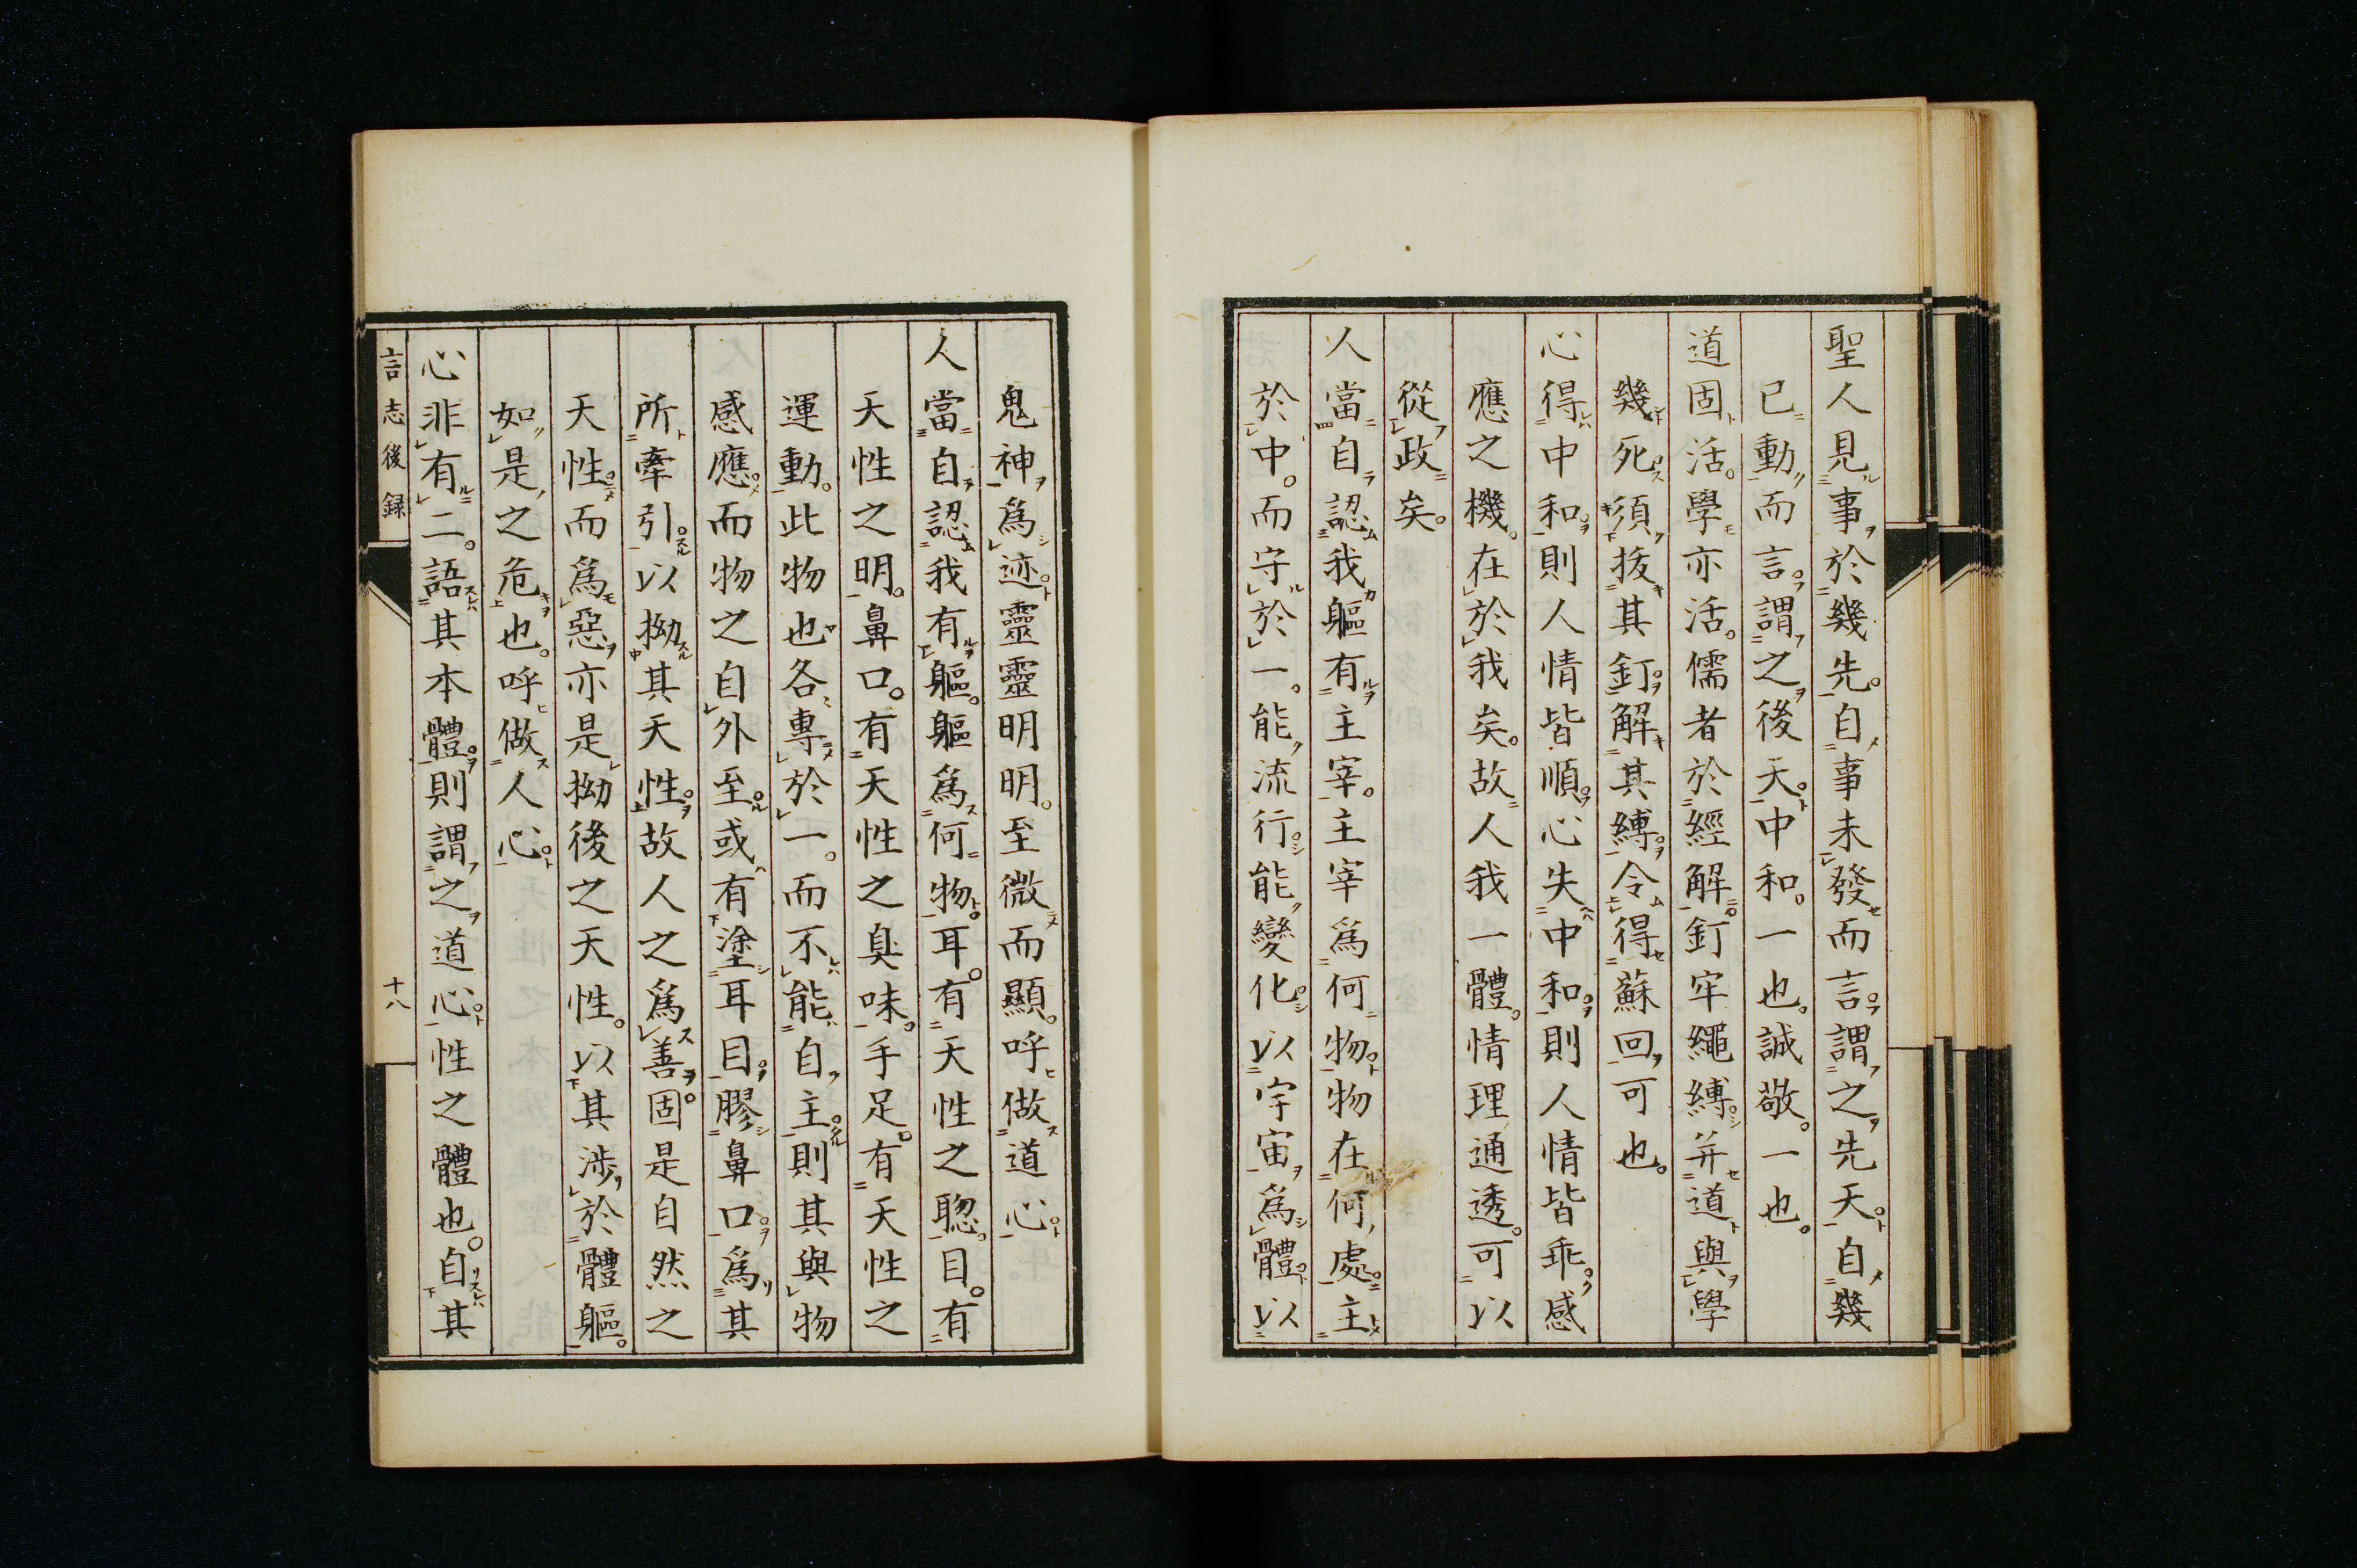 聖人見事於幾先。自事未發而言。謂之先天。自幾
已動而言。謂之後天。中和。一也。誠敬。一也。
道固活。學亦活。儒者於經解。釘牢繩縛。并道與學
幾死。須拔其釘。解其縛。令得蘇回。可也。
心得中和。則人情皆順。心失中和。則人情皆乖。感
應之機。在於我矣。故人我一體。情理通透。可以
從政矣。
人當自認我軀有主宰。主宰爲何物。物在何處。主
於中。而守於一。能流行。能變化。以宇宙爲體。以
鬼神爲迹。靈靈明明。至微而顯。呼做道心。
人當自認我有軀。軀爲何物。耳。有天性之聰。目。有
天性之明。鼻口。有天性之臭味。手足。有天性之
運動。此物也各專於一。而不能自主。則其與物
感應。而物之自外至。或有塗耳目。膠鼻口。爲其
所牽引。以拗其天性。故人之爲善。固是自然之
天性。而爲惡。亦是拗後之天性。以其涉於體軀。
如是之危也。呼做人心。
心非有二。語其本體。則謂之道心。性之體也。自其
言志後録
十八